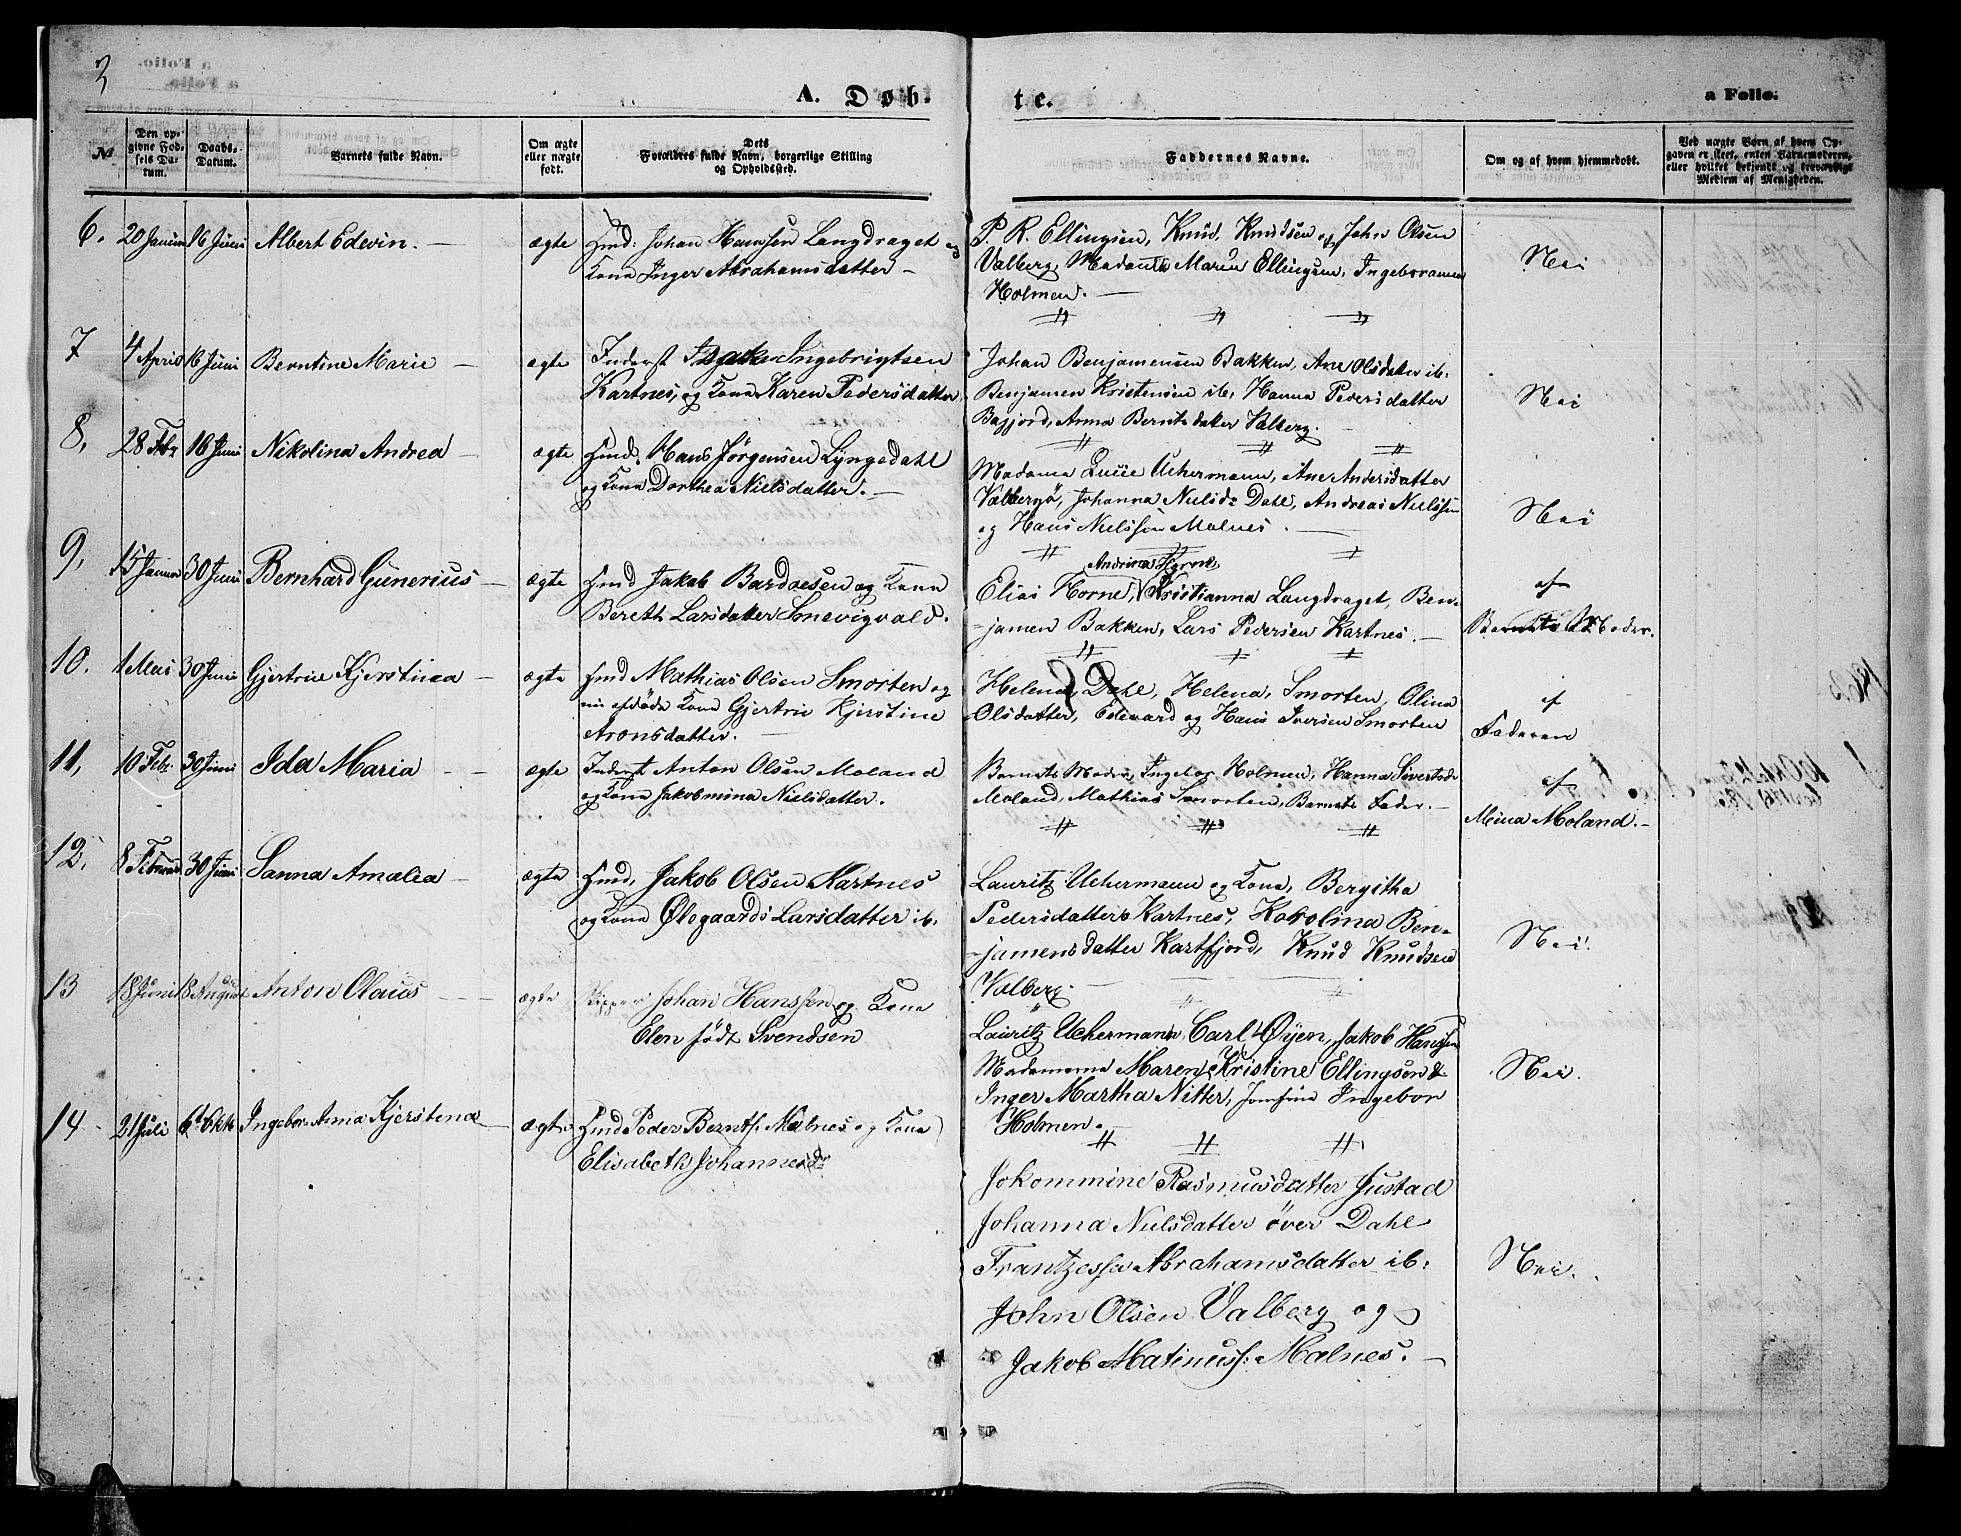 3
A. Døb-
te.
a Folio.
№
Den opgivne Fødsels Datum.
Daabs-Datum.
Barnets fulde Navn.
Om ægte eller uægte født.
Dets Forældres fulde Navn, borgerlige Stilling og Opholdssted.
Faddernes Navne.
Om og af hvem hjemmedøbt.
Ved uægte Børn af hvem Opgaven er skeet, enten Barnemoderen, eller hvilket bekjendt og troværdigt Medlem af Menigheden.
6. 20 Januar 16 Juni Albert Edevin. — ægte Gmd: Johan Hanssen Langdraget og
Kone Inger Abrahamsdatter —
P. R. Ellingsen, Knud Knudsen og John Olsen
Valberg, Madame Maren Ellingsen, Ingeboranna
Holmen. —
Nei
7 4 April 16 Juni Berntine Marie — ægte Inderst Isak Ingebrigtsen
Kartnes, og Kone Karen Pedersdatter
Johan Benjamensen Bakken, Ane Olsdatter ib.
Benjamen Kristensen ib, Hanna Pedersdatter
Bagjord, Anna Berntsdatter Valberg.
Nei
8. 28 Febr 16 Juni Nikolina Andrea — ægte Gmd. Hans Jørgensen Lyngedahl
og Kone Dorthea Nielsdatter. —
Madame Lucie Uchermann, Ane Andersdatter
Valbergø, Johanna Nielsd: Dahl, Andreas Nielsen
og Hans Nielssen Malnes.
Nei
9. 15 Januar 30 Juni Bernhard Gunerius — ægte Gmd Jakob Bardoesen og Kone
Bereth Larsdatter Smevigvald.
Andrina Horne,
Elias Horne, Kristianna Langdraget, Ben-
-jamen Bakken, Lars Pedersen Kartnes. —
af
Barnets Moder.
10. 1 Mai 30 Juni Gjertrine Kjerstina — ægte Gmd Mathias Olsen Smorten og
nu afdøde Kone Gjertrine Kjerstine
Aronsdatter. —
Helena Dahl, Helena Smorten, Olina
Olsdatter, Edevard og Hans Iversen Smorten
af
Faderen
11, 10 Feb. 30 Juni Ida Maria — ægte Inderst Anton Olsen Moland
og Kone Jakobmina Nielsdatter.
Barnets Moder, Ingebor Holmen, Hanna Sivertsd:
Moland, Mathias Smorten, Barnets Fader. —
af
Mina Moland. —
12. 8 Februar 30 Juni Sanna Amalia — ægte Gmd. Jakob Olsen Kartnes
og Kone Ølegaards Larsdatter ib.
Lauritz Uchermann og Kone, Bergitha
Pedersdatter Kartnes, Karolina Ben-
-jamensdatter Kartfjord, Knud Knudsen
Valberg. —
Nei.
13 18 Juni 18 August Anton Olaus — ægte Johan Hanssen og Kone
Elen født Svendsen
Lauritz Uchermann, Carl Øyen, Jakob Hanssen
Madamerne Maren Kristine Ellingsen &
Inger Martha Nitter, Ingebor
Holmen.
Nei.
14 21 Juli 6t Okt Ingebor Anna Kjerstena — ægte Gmd Peder Bernts: Malnes og Kone
Elisabeth Johannesd:
Jokommine Rasmusdatter Justad
Johanna Nielsdatter över Dahl
Frantzessa Abrahamsdatter ib.
John Olsen Valberg og
Jakob Matinuss: Malnes. —
Nei.